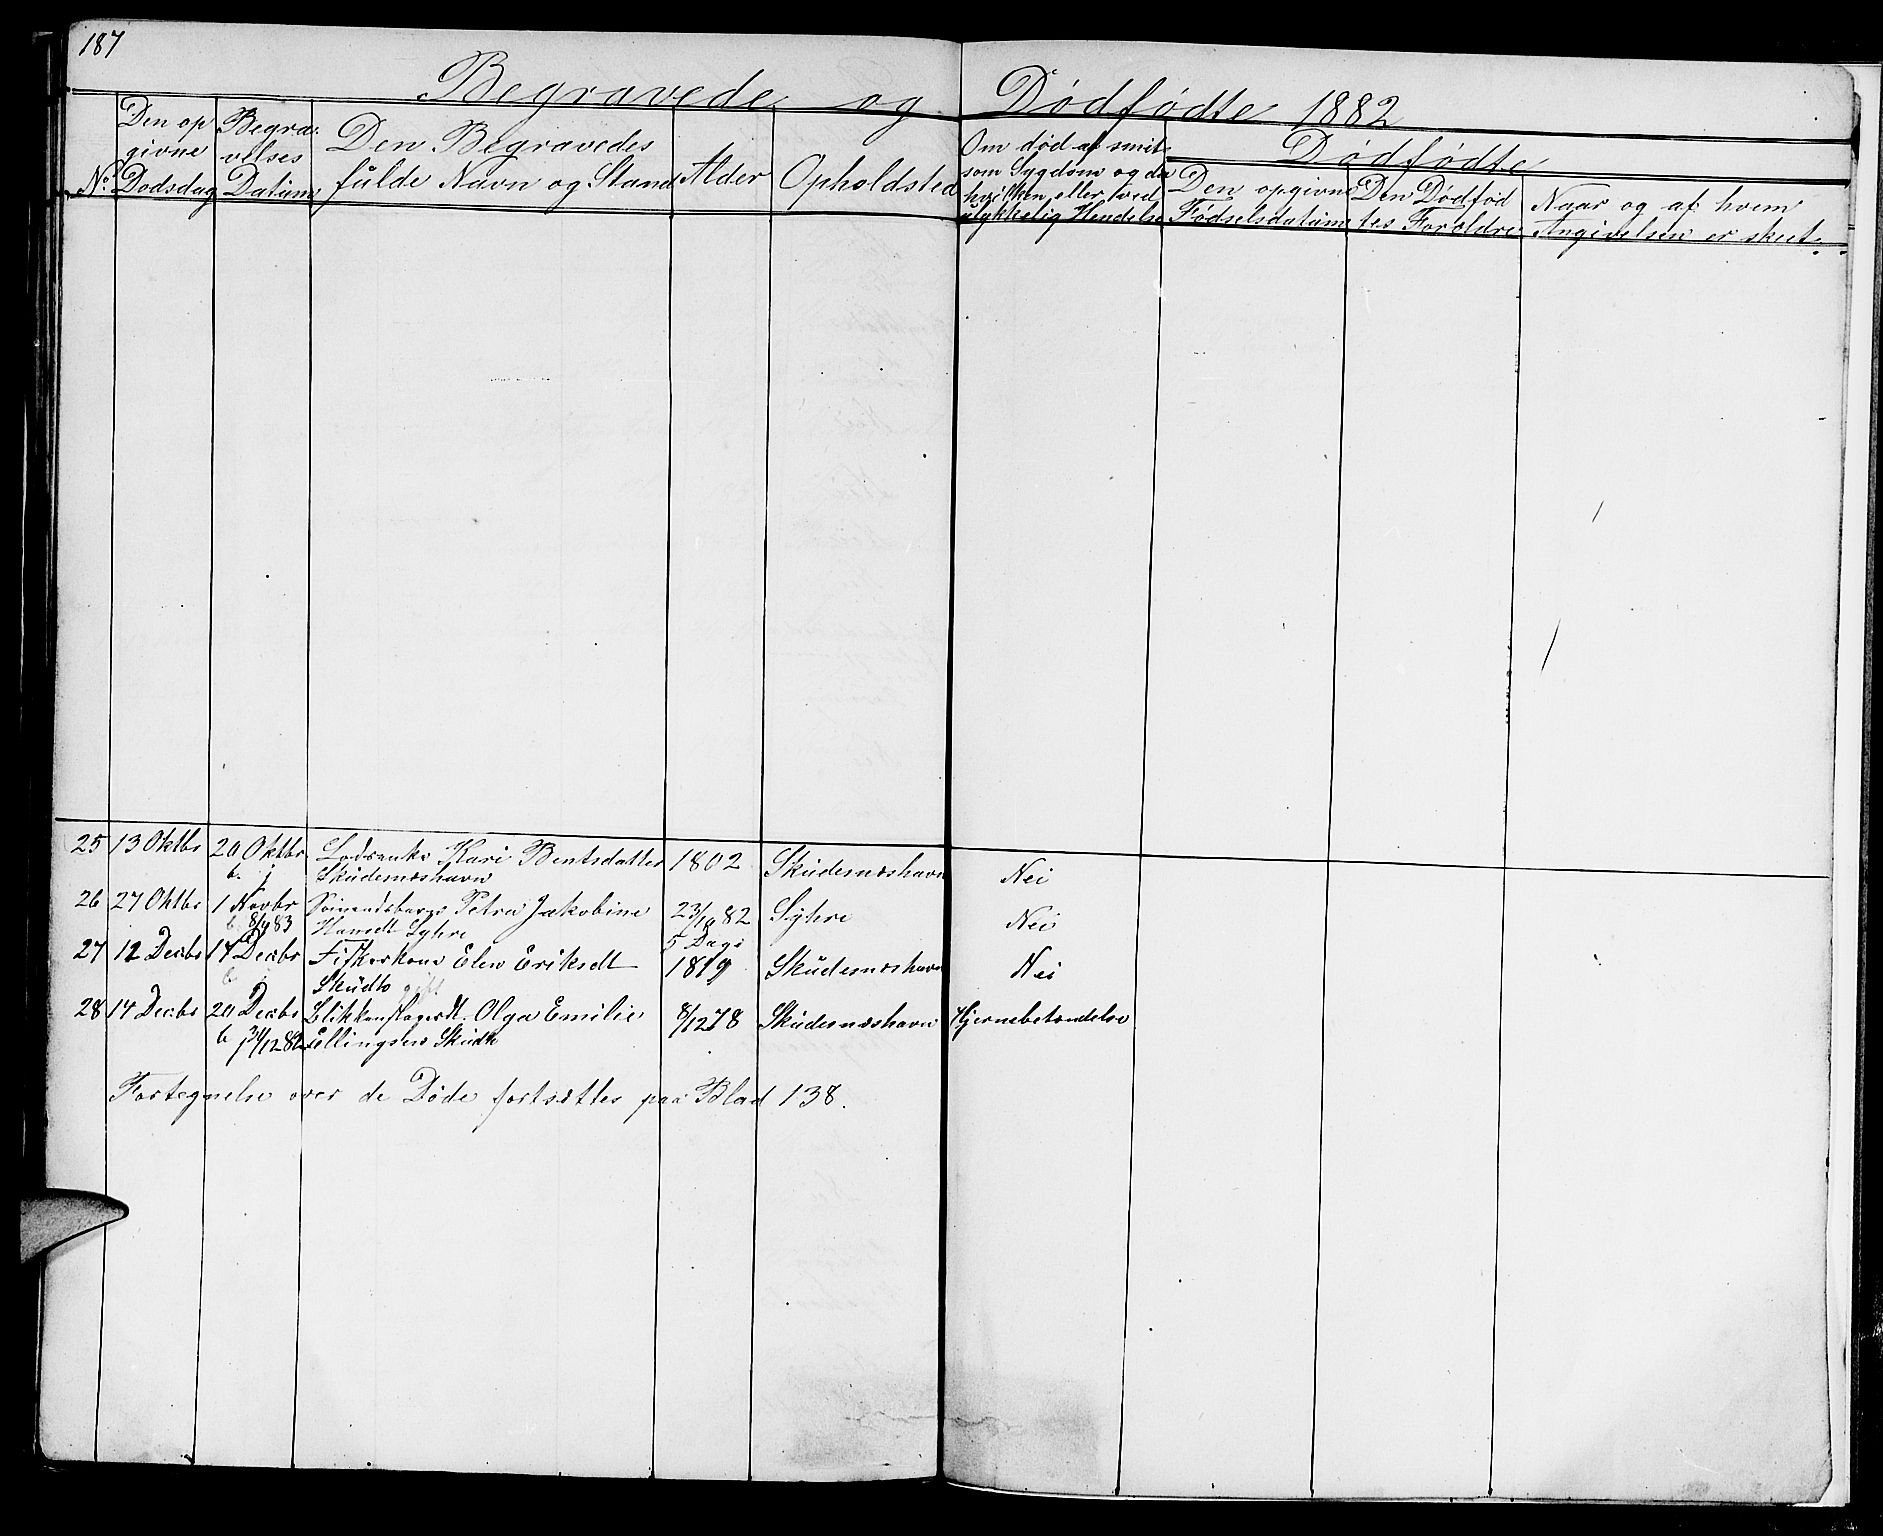 187
Begravede og Dødfødte 1882
No. Den opgivne Dødsdag
Begravelses Datum
Den Begravedes fulde Navn og Stand
Alder
Opholdsted
Om død af smitsom Sygdom og da hvilken, eller ved ulykkelig Hendelse
Dødfødte
Den opgivne Fødselsdatum
Den Dødfødtes Forældre
Naar og af hvem Angivelsen er skeet.
25 13 Oktbr 20 Oktbr Kari Bentsdatter 1802 Skudesneshavn Nei
Skudesneshavn
26 27 Oktbr 1 Novbr Petra Jakobine 23/10 82 Syhre Nei
Hansdt Syhre 5 Dage
27 12 Decbr 17 Decbr Fiskerkone Elen Eriksdt 1819 Skudesneshavn Nei
Skudes gift
28 14 Decbr 20 Decbr Blikkenslagerdt. Olga Emilie 8/12 78 Skudesneshavn Hjernebetændelse
Ellingsen
Fortegnelse over de Døde fortsættes paa Blad 138.